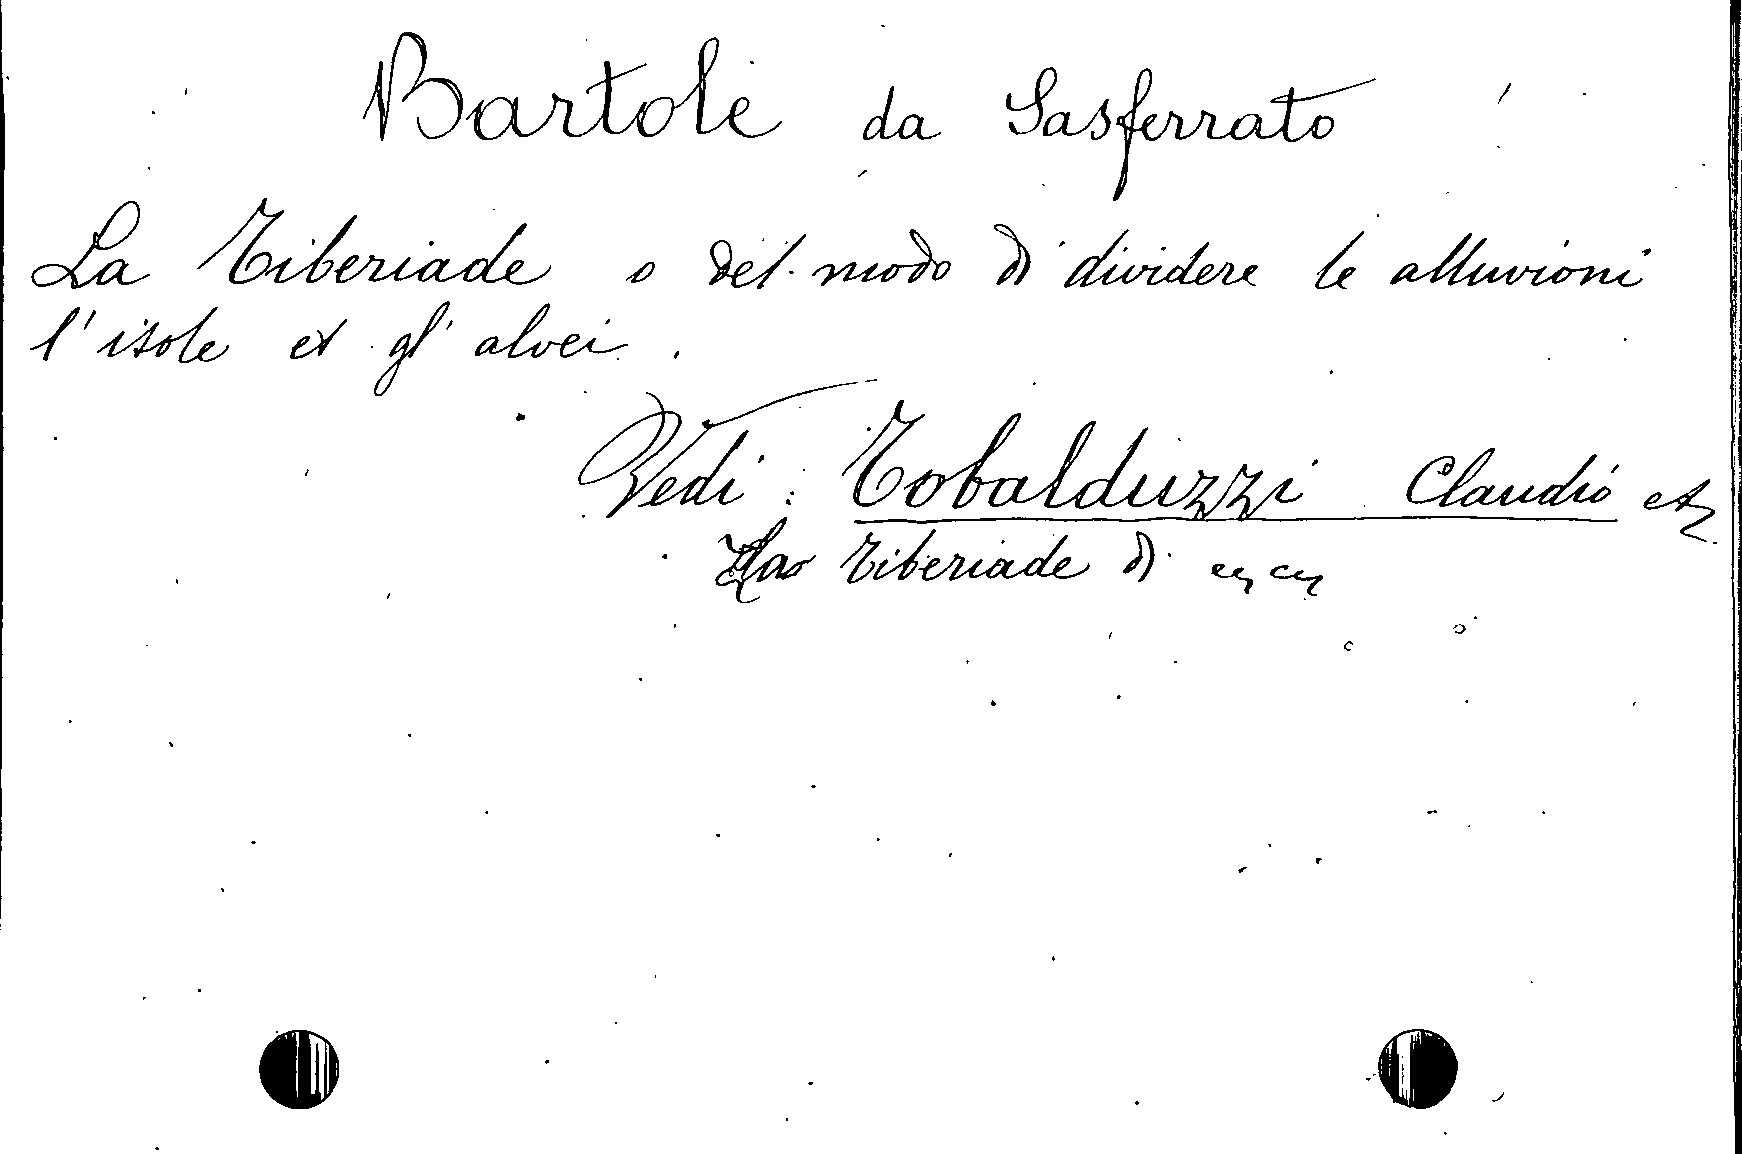 Bartole da Sasferrato
La Tiberiade o del modo di dividere le alluvioni
l'isole et gl' alvei.
Vedi: Tobalduzzi Claudio
La Tiberiade di